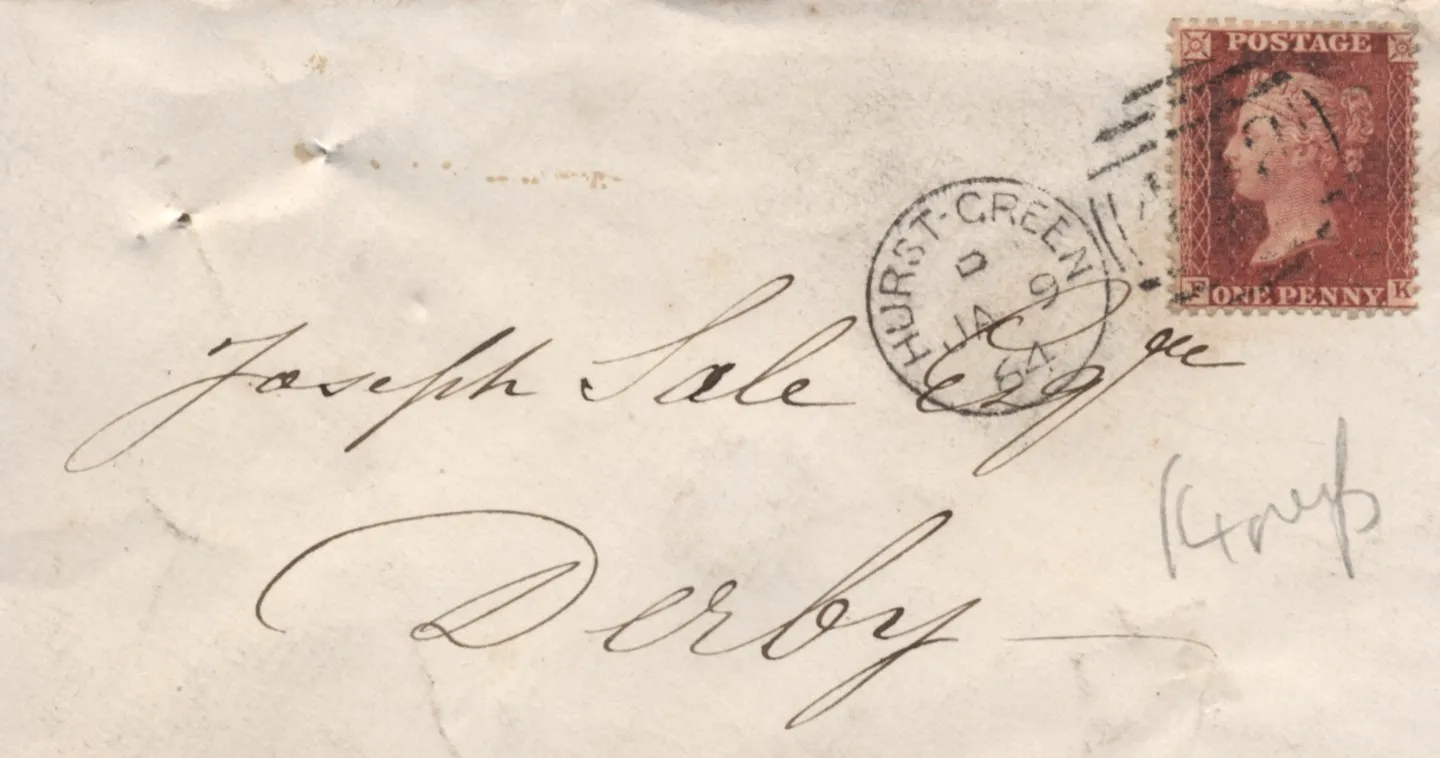 POSTAGE
F ONE PENNY K
HURST-GREEN
D
JA 9
64
Joseph Sale Esqre
Derby